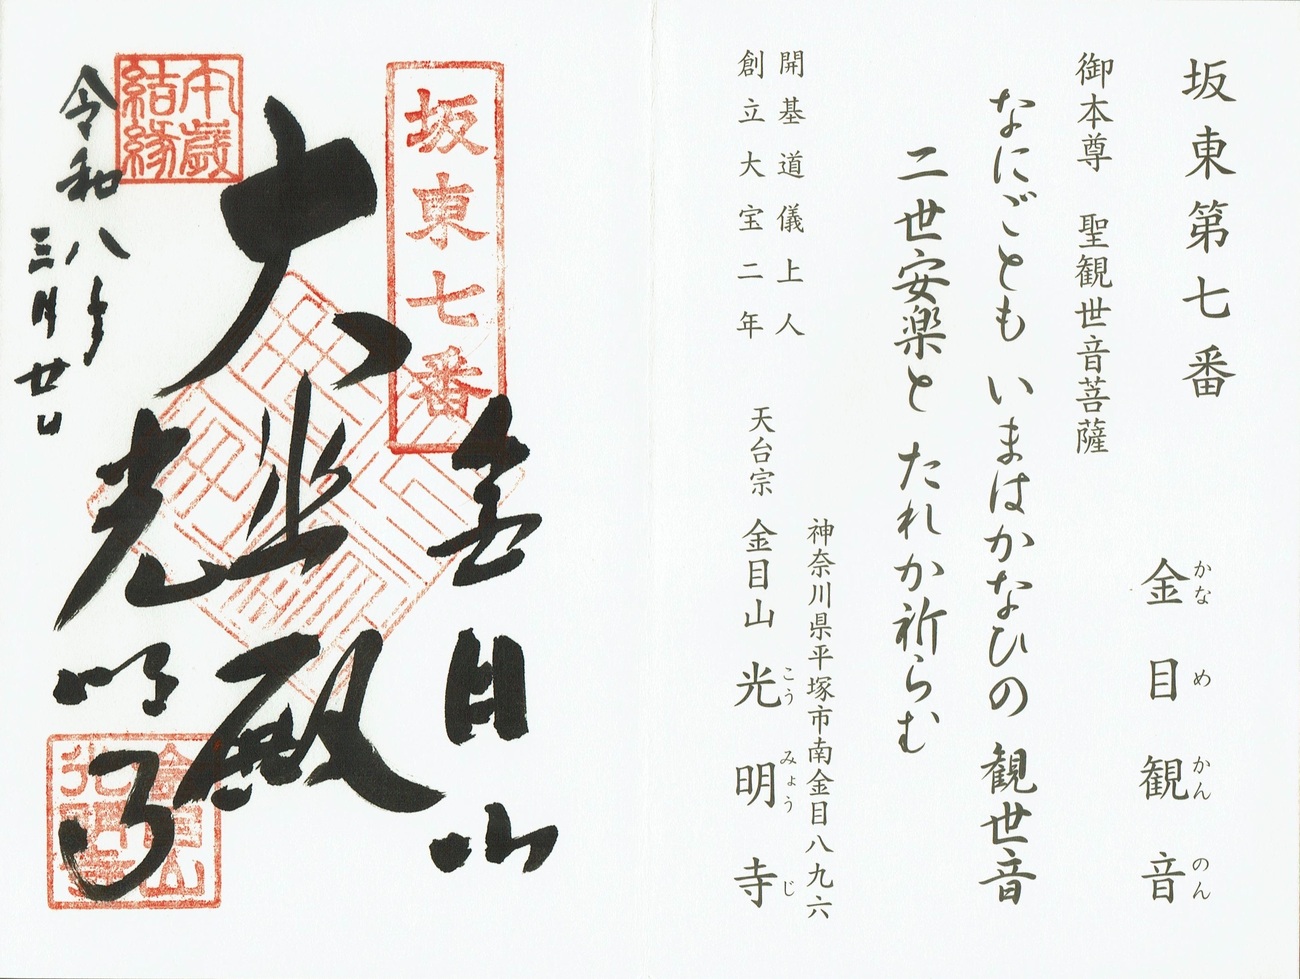 坂東第七番
金目観音
かなめかんのん
御本尊 聖観世音菩薩
なにごとも いまはかなひの 観世音
二世安楽と たれか祈らむ
開基道儀上人
創立大宝二年
神奈川県平塚市南金目八九六
天台宗 金目山 光明寺
こうみょうじ
坂東七番
金目山
大悲殿
光明寺
本歳結縁
令和八年
三月廿日
金目山光明寺